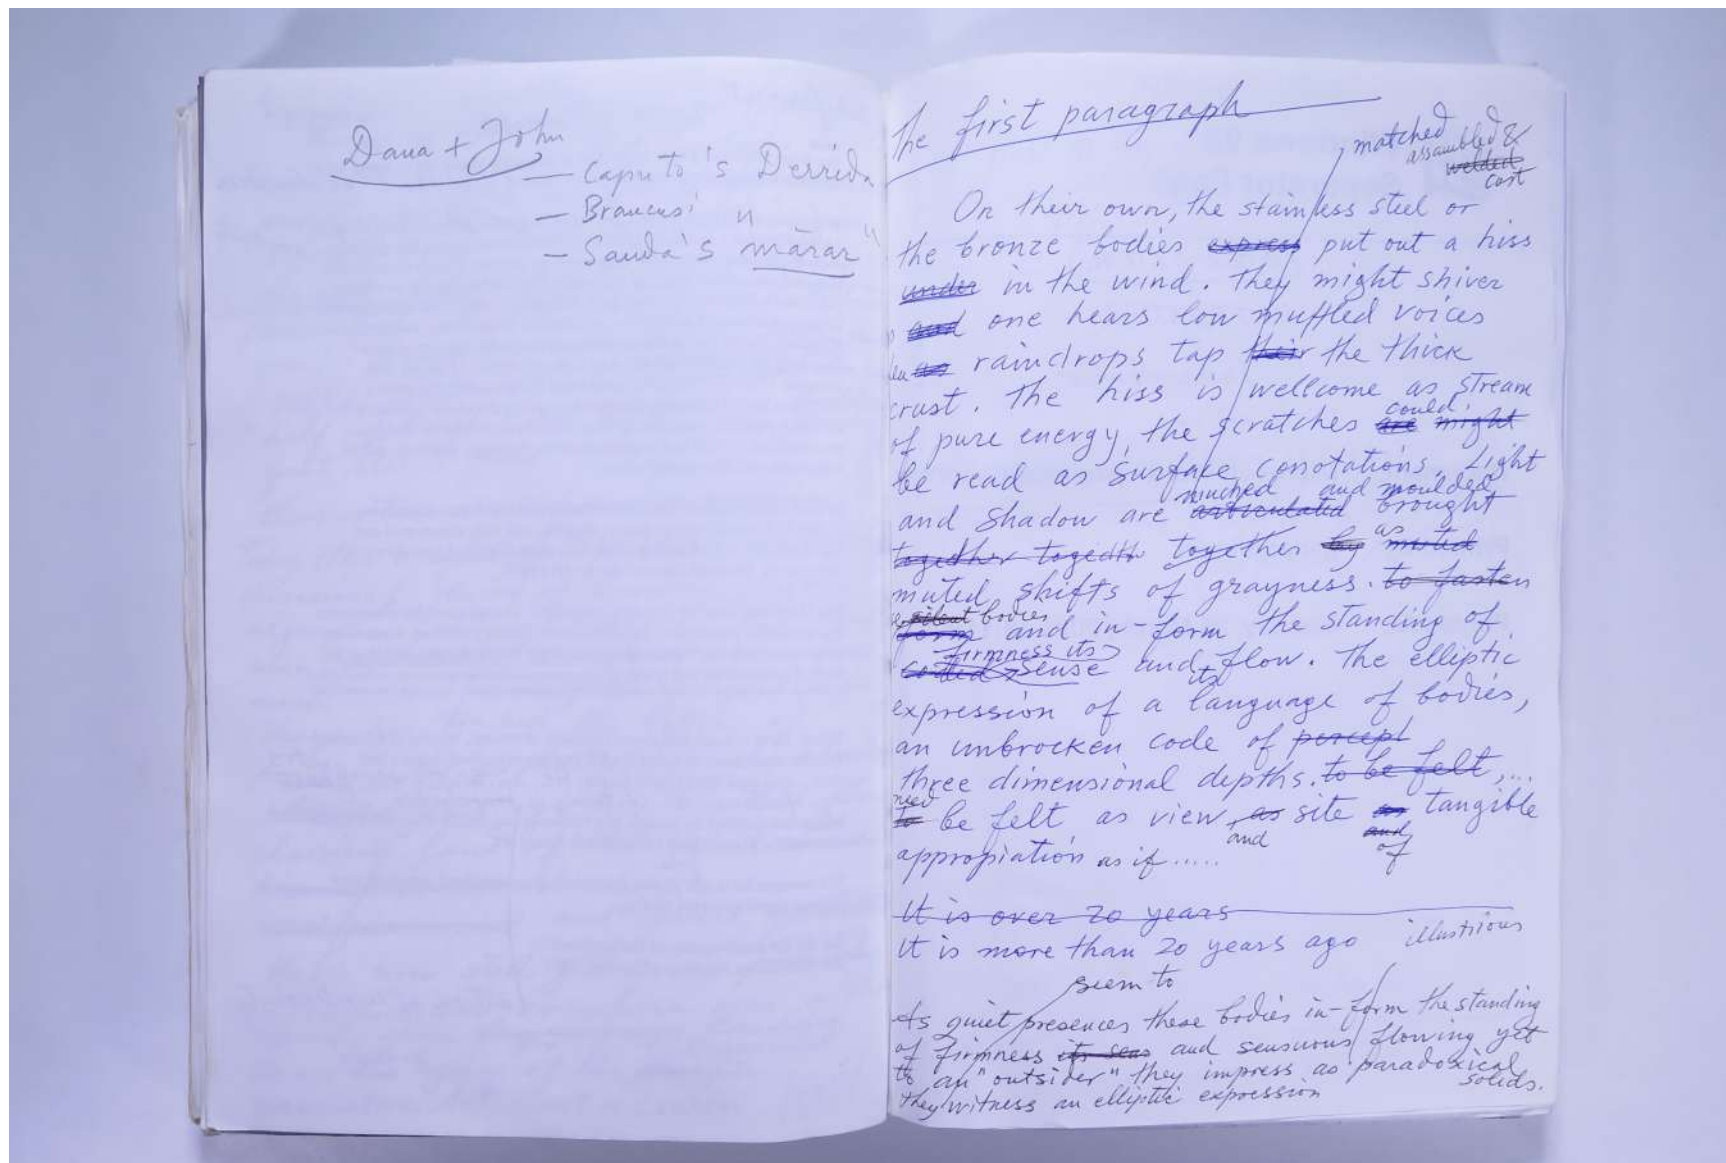 Dana + John
— Caputo's Derrida
— Brancusi "
— Sauda's "mārar"
the first paragraph
matched
assambled &
welded
cast
On their own, the stainless steel or
the bronze bodies express put out a hiss
under in the wind. They might shiver
and one hears low muffled voices
as raindrops tap their the thick
crust. The hiss is wellcome as stream
of pure energy, the scratches are might
could
be read as surface conotations. Light
and moulded
and shadow are articulated brought
togedther togedth together by as muted
muted shifts of grayness. to fasten
silent bodies
form and in-form the standing of
firmness its
coded sense and flow. The elliptic
its
expression of a language of bodies,
an unbrocken code of percept
three dimensional depths. to be felt,...
need
to be felt as view, as site as tangible
and and of
appropiation as if .....
It is over 20 years
It is more than 20 years ago illustrious
seem to
As quiet presences these bodies in-form the standing
of firmness its sens and sensuous flowing yet
to an "outsider" they impress as paradoxical
solids.
they witness an elliptic expression